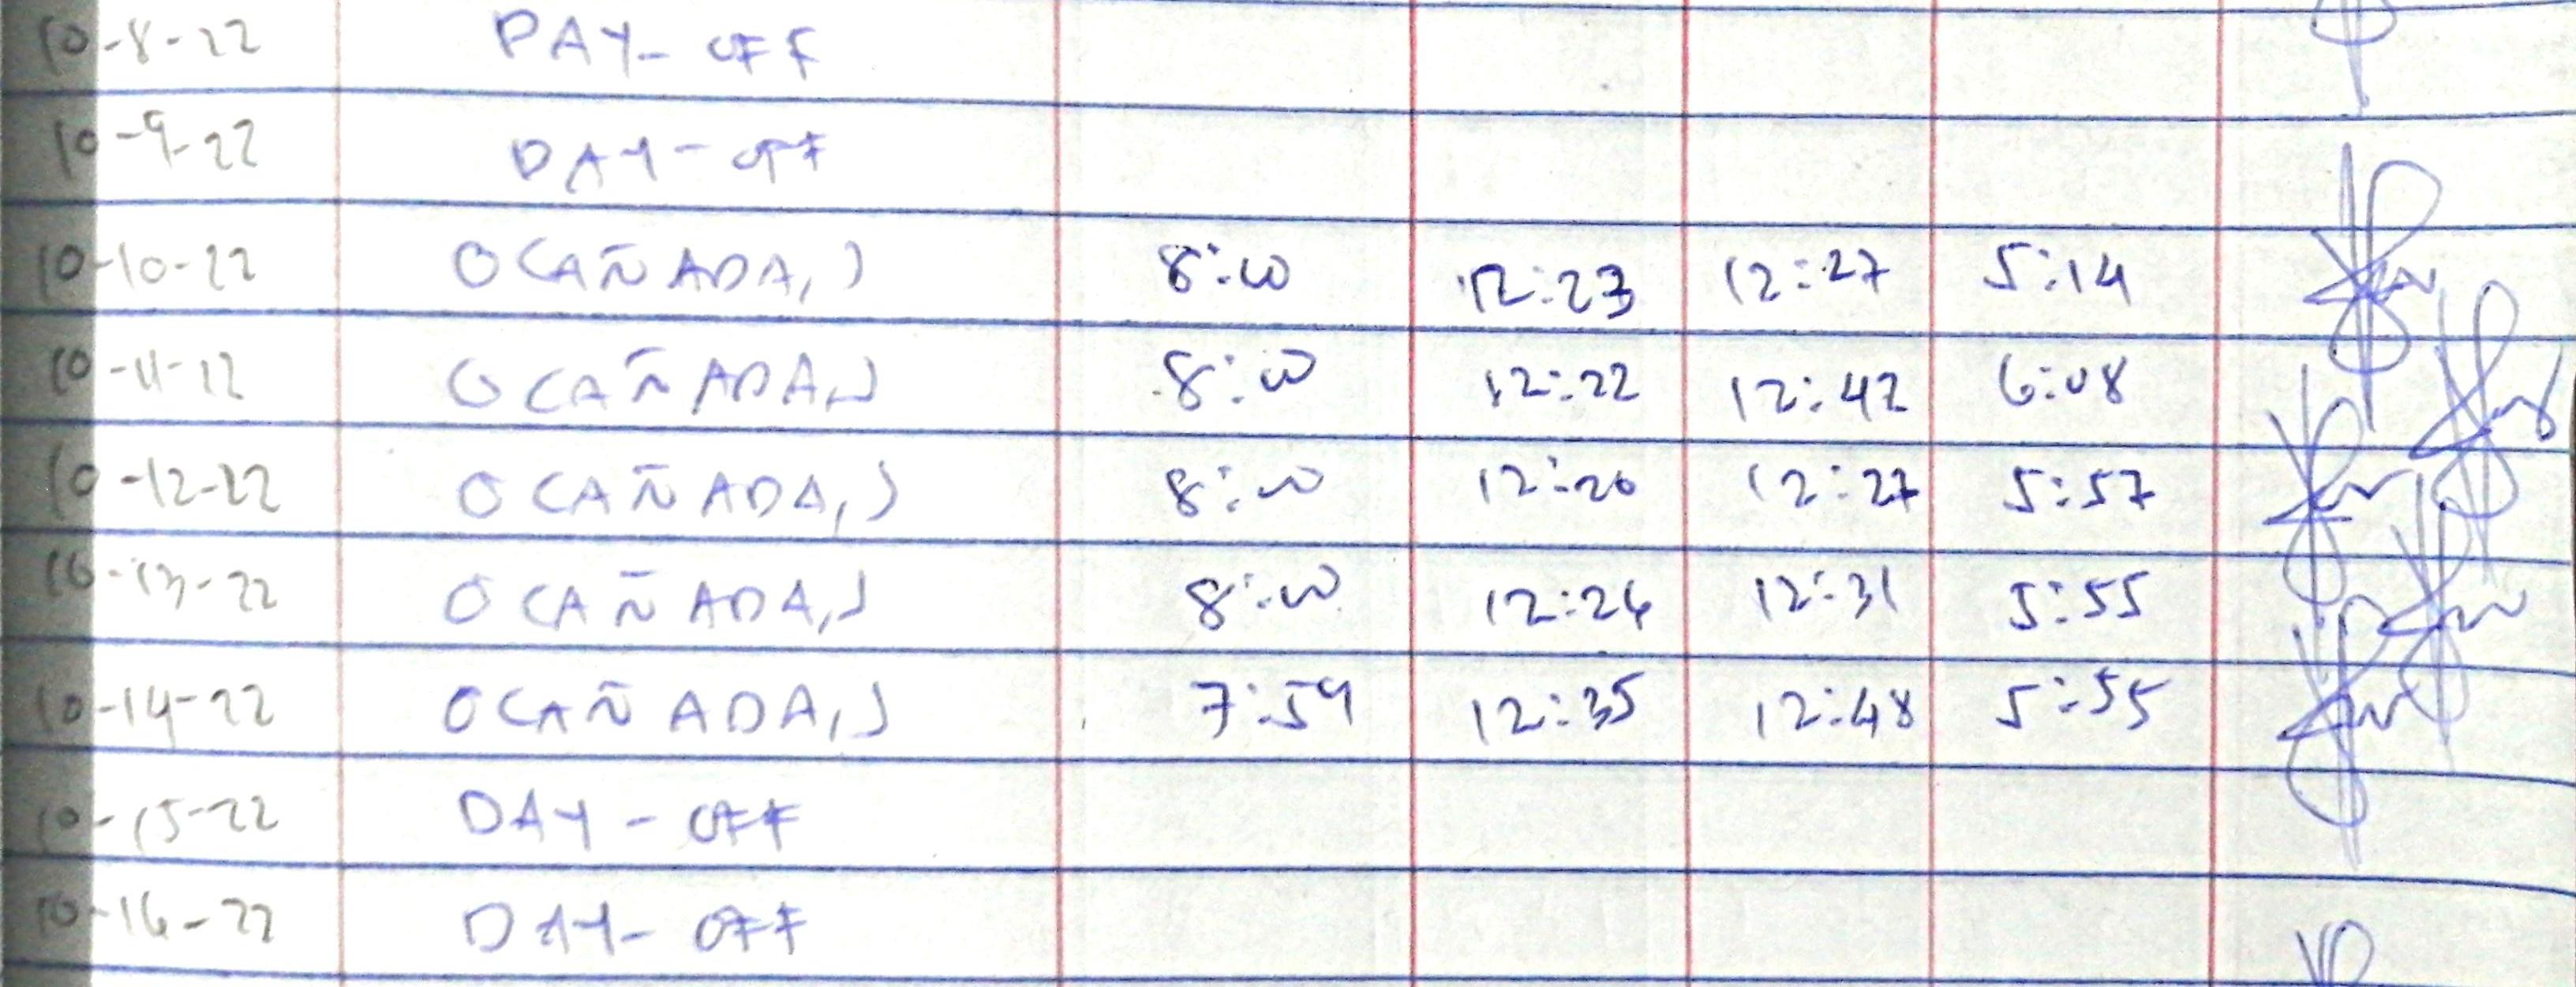 10-8-22 DAY-OFF
10-9-22 DAY-OFF
10-10-22 OCAÑADA, J 8:00 12:23 12:27 5:14
10-11-22 OCAÑADA, J 8:00 12:22 12:42 6:08
10-12-22 OCAÑADA, J 8:00 12:20 12:27 5:57
10-13-22 OCAÑADA, J 8:00 12:26 12:31 5:55
10-14-22 OCAÑADA, J 7:59 12:35 12:48 5:55
10-15-22 DAY-OFF
10-16-22 DAY-OFF